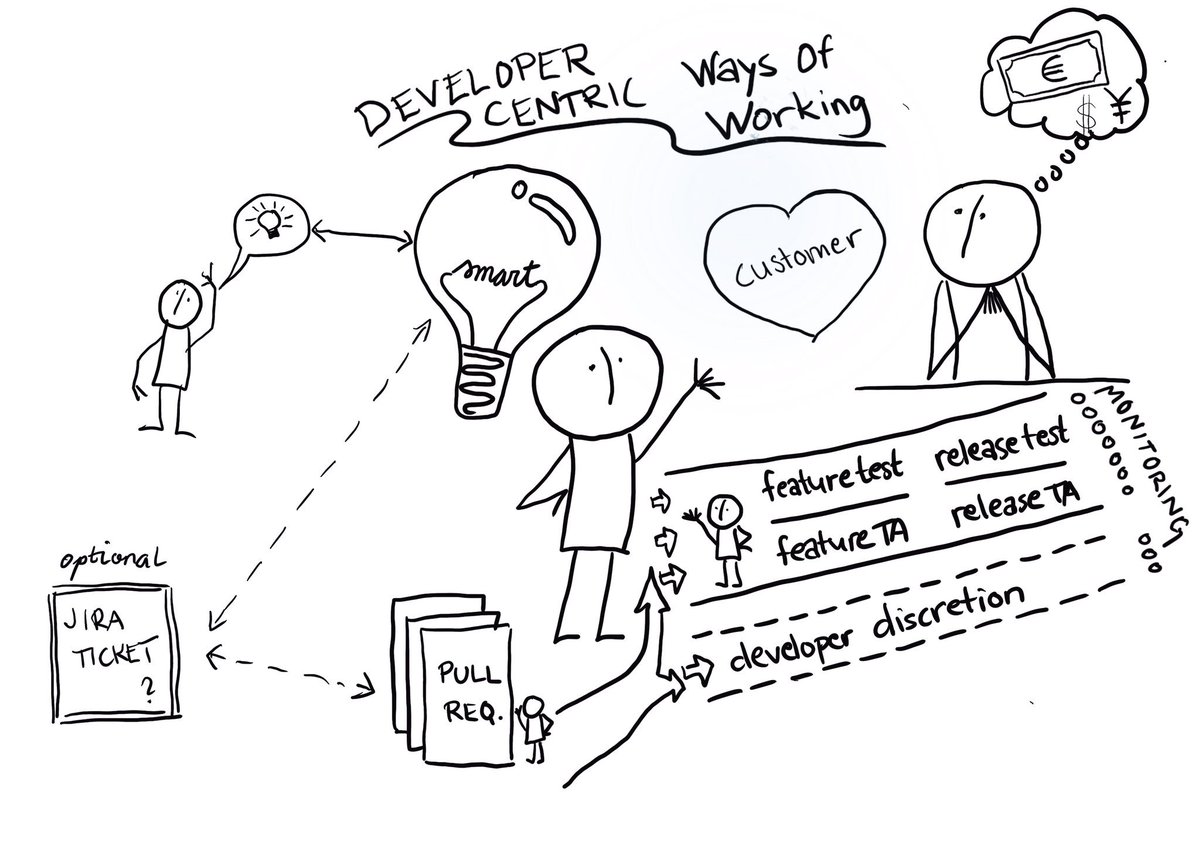 DEVELOPER
CENTRIC
Ways Of
Working
€
$ ¥
smart
customer
MONITORING
feature test
release test
feature TA
release TA
developer discretion
optional
JIRA
TICKET
?
PULL
REQ.